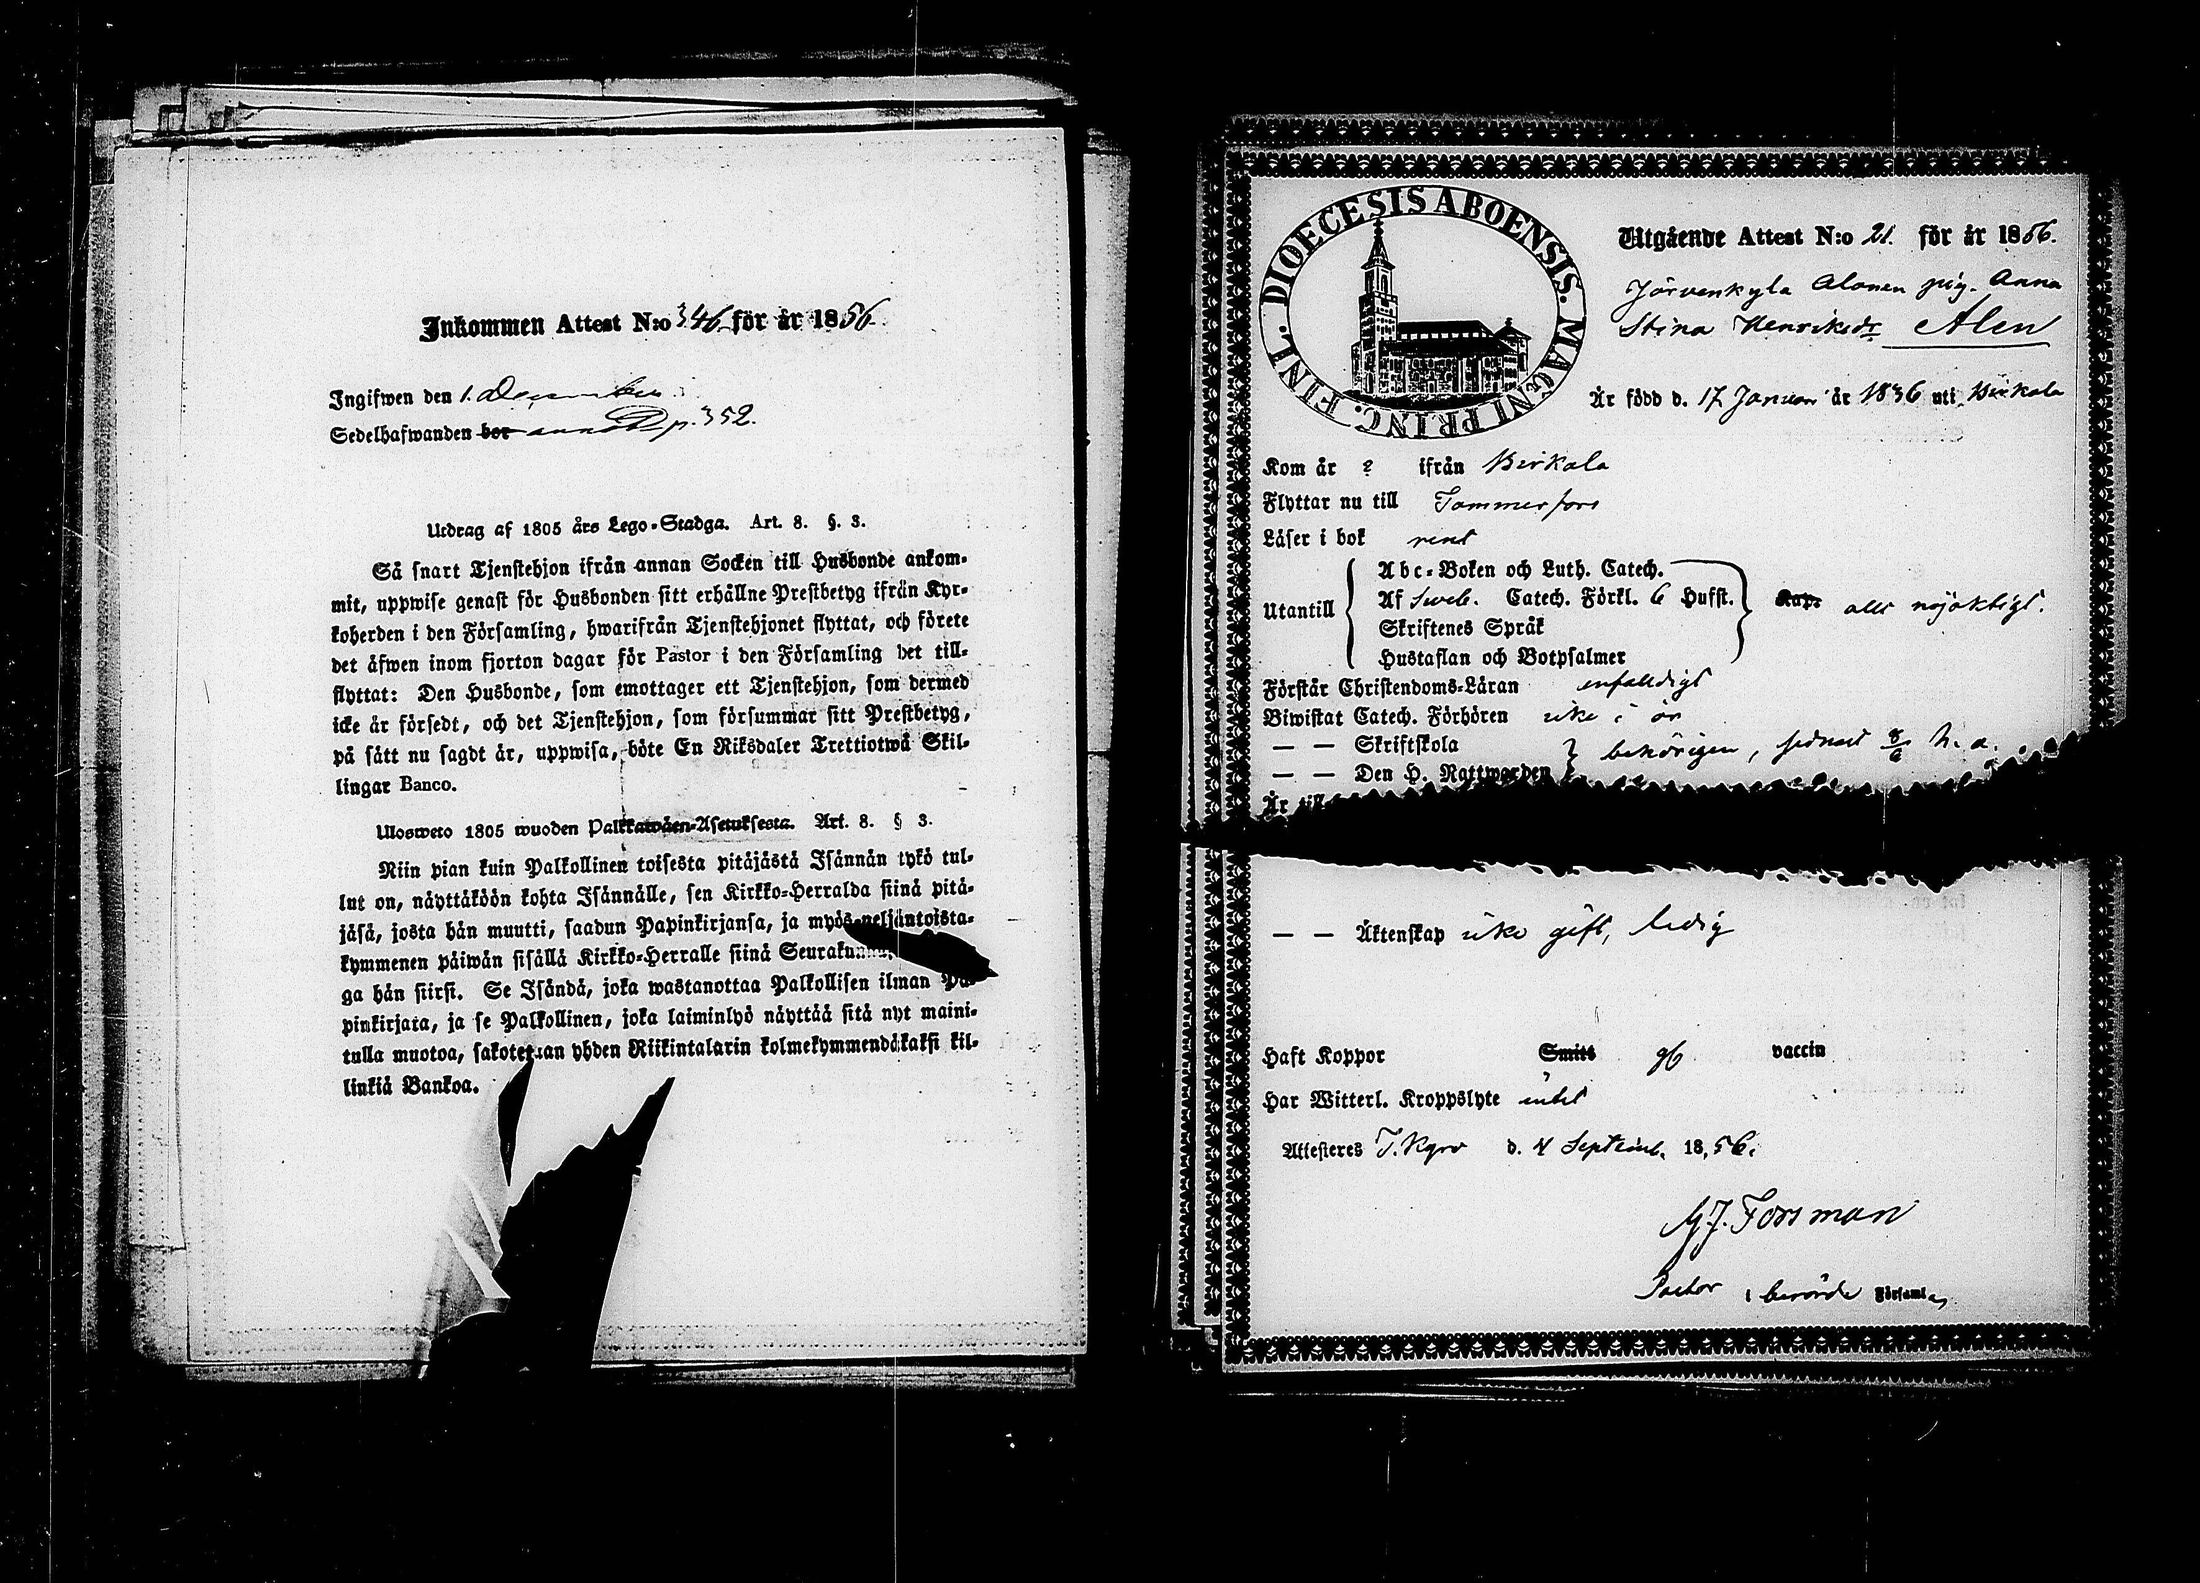 Inkommen Attest N:o 346 för år 1856.
Ingifwen den 1. December
Sedelhafwanden bor annot. p. 352.
Utdrag af 1805 års Lego-Stadga. Art. 8. §. 3.
Så snart Tjenstehjon ifrån annan Socken till Husbonde ankom-
mit, uppwise genast för Husbonden sitt erhållne Prestbetyg ifrån Kyr-
koherden i den Församling, hwarifrån Tjenstehjonet flyttat, och förete
det äfwen inom fjorton dagar för Pastor i den Församling det till-
flyttat: Den Husbonde, som emottager ett Tjenstehjon, som dermed
icke är försedt, och det Tjenstehjon, som försummar sitt Prestbetyg,
på sätt nu sagdt är, uppwisa, böte En Riksdaler Trettiotwå Skil-
lingar Banco.
Ulosweto 1805 wuoden Palkkawäen-Asetuksesta. Art. 8. § 3.
Niin pian kuin Palkollinen toisesta pitäjästä Isännän tykö tul-
lut on, näyttäköön kohta Isännälle, sen Kirkko-Herralda siinä pitä-
jäsä, josta hän muutti, saadun Papinkirjansa, ja myös neljäntoista-
kymmenen päiwän sisällä Kirkko-Herralle siinä Seurakunna
ga hän siirsi. Se Isändä, joka wastanottaa Palkollisen ilman Pa-
pinkirjata, ja se Palkollinen, joka laiminlyö näyttää sitä nyt maini-
tulla muotoa, sakotetaan yhden Riikintalarin kolmekymmendäkaksi kil-
linkiä Bankoa.
DIOECESIS ABOENSIS. MAGNI PRINC. FINL.
Utgående Attest N:o 21. för år 1856.
Järvenkylä Alonen pig. Anna
Stina Henriksdr Alen
Är född d. 17 Januari år 1836 uti Birkala
Kom år ? ifrån Birkala
Flyttar nu till Tammerfors
Läser i bok rent
Utantill
Abc-Boken och Luth. Catech.
Af Sveb. Catech. Förkl. 6 Hufst. Kap. allt nöjaktigt.
Skriftenes Språk
Hustaflan och Botpsalmer
Förstår Christendoms-Läran enfaldigt
Biwistat Catech. Förhören icke i år
— — Skriftskola
— — Den H. Nattwarden behörigen, sednast 8/6 h. a.
Är till
— — Äktenskap icke gift, ledig
Haft Koppor Smitt gb vaccin
Har Witterl. Kroppslyte intet
Attesteres T. Kyro d. 4 Septemb. 1856.
Forsman
Pastor i berörde Församl